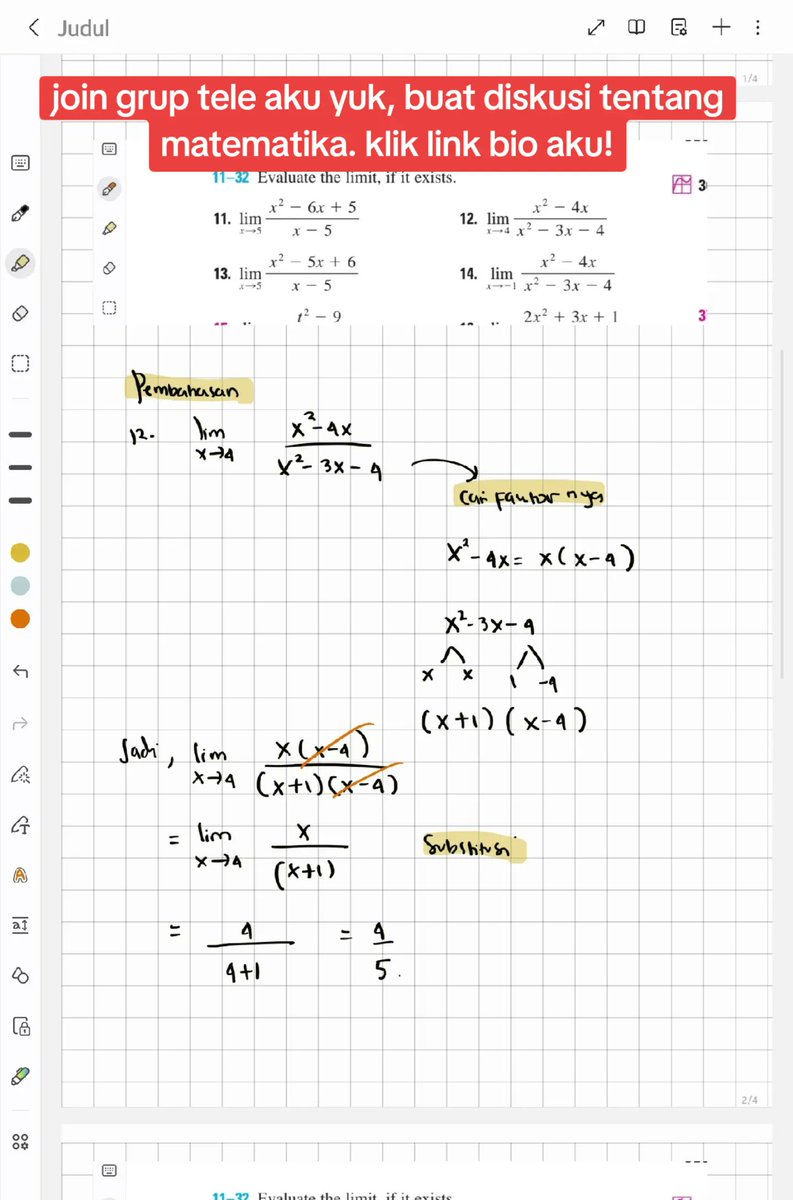 Judul
1/4
join grup tele aku yuk, buat diskusi tentang
matematika. klik link bio aku!
11–32 Evaluate the limit, if it exists.
3
11. lim x→5 (x² − 6x + 5)/(x − 5)
12. lim x→4 (x² − 4x)/(x² − 3x − 4)
13. lim x→5 (x² − 5x + 6)/(x − 5)
14. lim x→−1 (x² − 4x)/(x² − 3x − 4)
t² − 9
2x² + 3x + 1
3
Pembahasan
12. lim x→4 (x² − 4x)/(x² − 3x − 4)
Cari Faktor nya
x² − 4x = x(x−4)
x² − 3x − 4
x x 1 −4
(x+1)(x−4)
Jadi, lim x→4 x(x−4)/(x+1)(x−4)
= lim x→4 x/(x+1)
Substitusi
= 4/(4+1) = 4/5.
2/4
11–32 Evaluate the limit, if it exists.